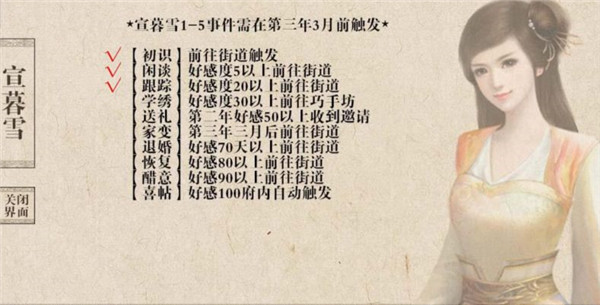 ★宣暮雪1-5事件需在第三年3月前触发★
【初识】前往街道触发
【闲谈】好感度5以上前往街道
【跟踪】好感度20以上前往街道
【学绣】好感度30以上前往巧手坊
【送礼】第二年好感50以上收到邀请
【家变】第三年三月后前往街道
【退婚】好感70天以上前往街道
【恢复】好感80以上前往街道
【醋意】好感90以上前往街道
【喜帖】好感100府内自动触发
宣暮雪
关闭界面